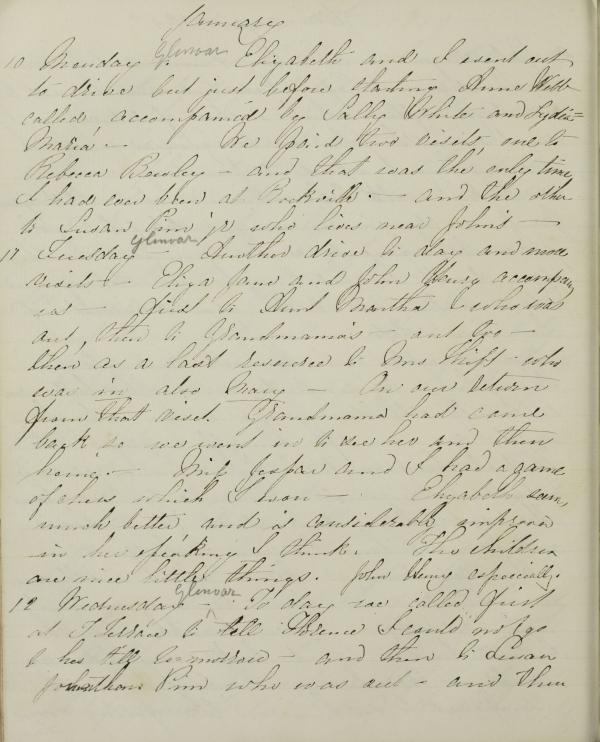 January
10 Monday Glenvar Elizabeth and I went out
to drive but just before starting Anne Webb
called, accompanied by Sally White and Lydia
Maria — We paid two visits, one to
Rebecca Bewley — and that was the only time
I had ever been at Rockville — and the other
to Susan Pim jr who lives near John's —
11 Tuesday Glenvar — Another drive to day and more
visits — Eliza Jane and John Henry accompany
us — first to Aunt Martha (who was
out, then to Grandmama's — out too —
then as a last resource to Mrs Shift who
was in also Mary — On our return
from that visit Grandmama had come
back so we went in to see her and then
home — Miss Jaspar and I had a game
of chess which I won — Elizabeth seems
much better and is considerably improved
in her speaking I think. The children
are nice little things. John Henry especially.
12 Wednesday Glenvar — To day we called first
at T. Terrace to tell Florence I could not go
to her till tomorrow — and then to Susan
Johnathan Pim who was out — and then